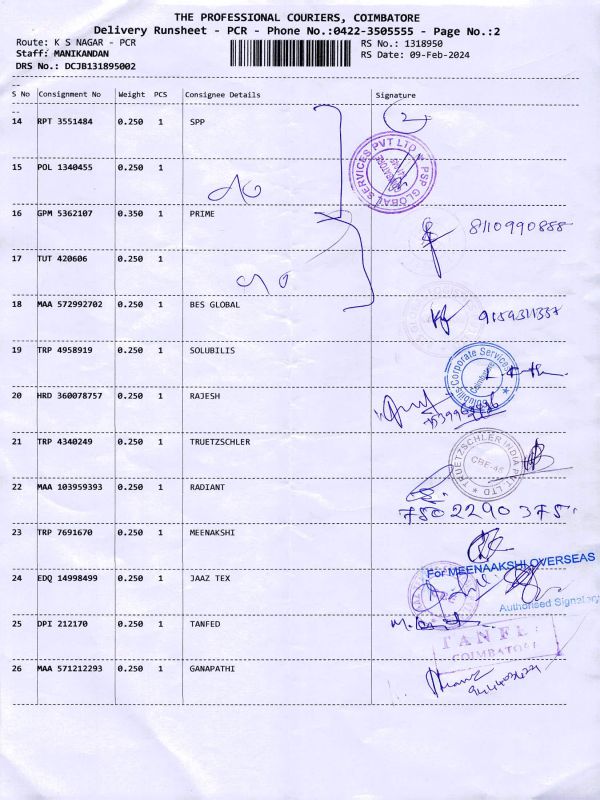 THE PROFESSIONAL COURIERS, COIMBATORE
Delivery Runsheet - PCR - Phone No.:0422-3505555 - Page No.:2
Route: K S NAGAR - PCR
RS No.: 1318950
Staff: MANIKANDAN
RS Date: 09-Feb-2024
DRS No.: DCJB131895002
S No Consignment No Weight PCS Consignee Details Signature
14 RPT 3551484 0.250 1 SPP
2
PSP GLOBAL SERVICES PVT LTD
15 POL 1340455 0.250 1
16 GPM 5362107 0.350 1 PRIME
8110990888
17 TUT 420606 0.250 1
18 MAA 572992702 0.250 1 BES GLOBAL
9159311337
19 TRP 4958919 0.250 1 SOLUBILIS
Solubilis Corporate Services
Coimbatore
20 HRD 360078757 0.250 1 RAJESH
21 TRP 4340249 0.250 1 TRUETZSCHLER
TRUETZSCHLER INDIA PVT LTD
CBE-45
22 MAA 103959393 0.250 1 RADIANT
750 2290 375.
23 TRP 7691670 0.250 1 MEENAKSHI
For MEENAAKSHI OVERSEAS
24 EDQ 14998499 0.250 1 JAAZ TEX
Authorised Signatory
25 DPI 212170 0.250 1 TANFED
COIMBATORE
26 MAA 571212293 0.250 1 GANAPATHI